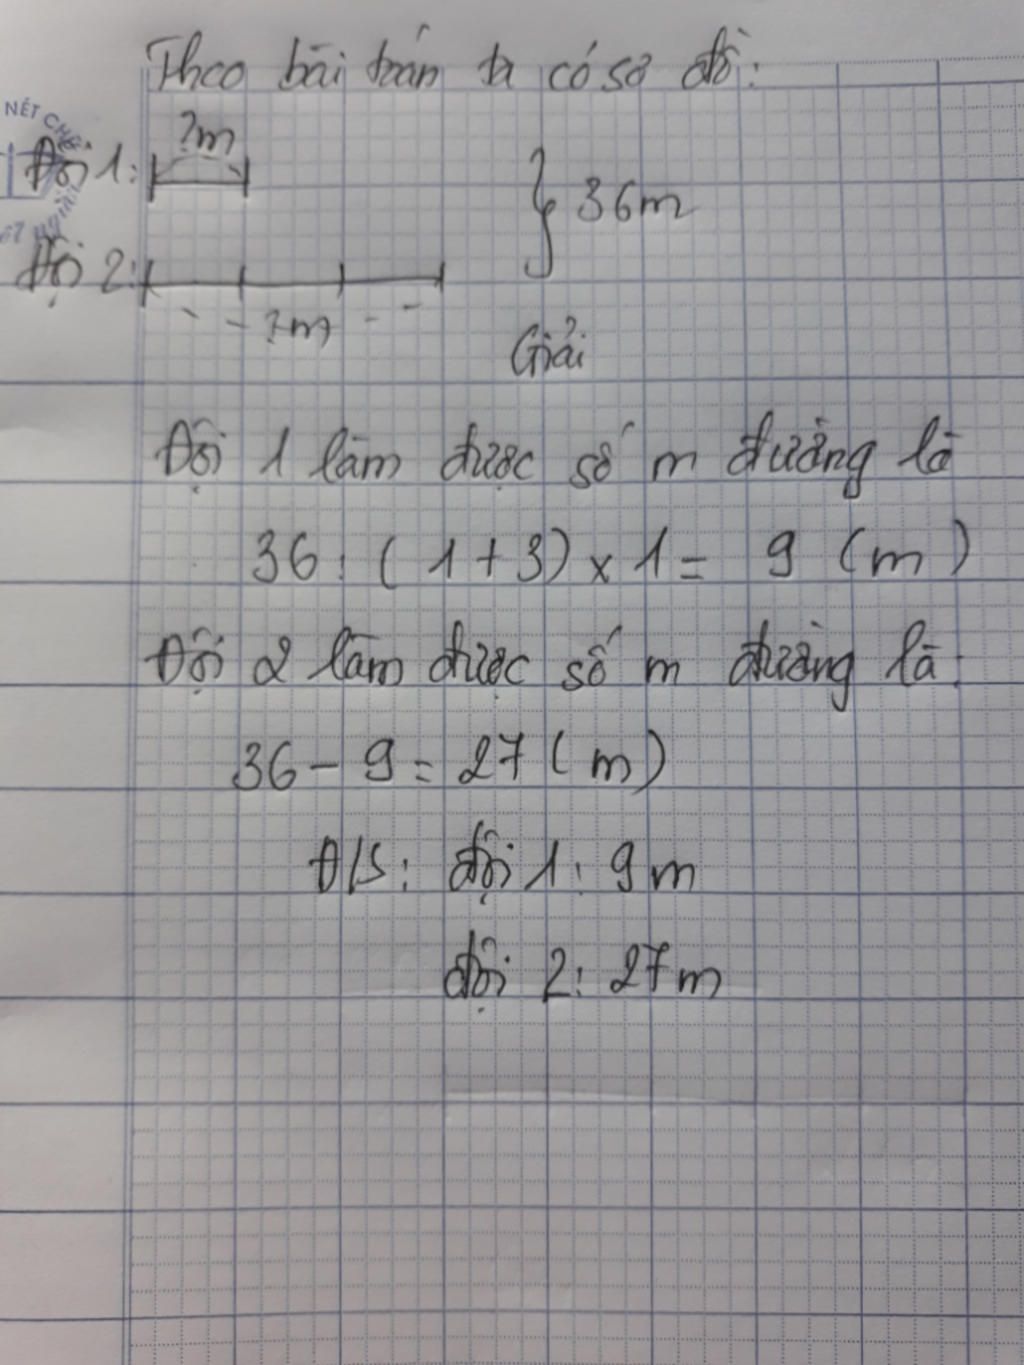 Theo bài toán ta có sơ đồ:
NÉT CHỮ
?m
Đội 1:
36m
Đội 2:
?m
Giải
Đội 1 làm được số m đường là
36 : ( 1 + 3 ) x 1 = 9 ( m )
Đội 2 làm được số m đường là:
36 - 9 = 27 ( m )
Đ/S: đội 1: 9m
đội 2: 27m